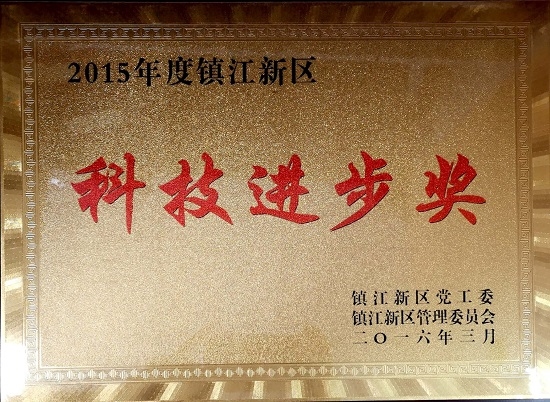 2015年度镇江新区
科技进步奖
镇江新区党工委
镇江新区管理委员会
二〇一六年三月